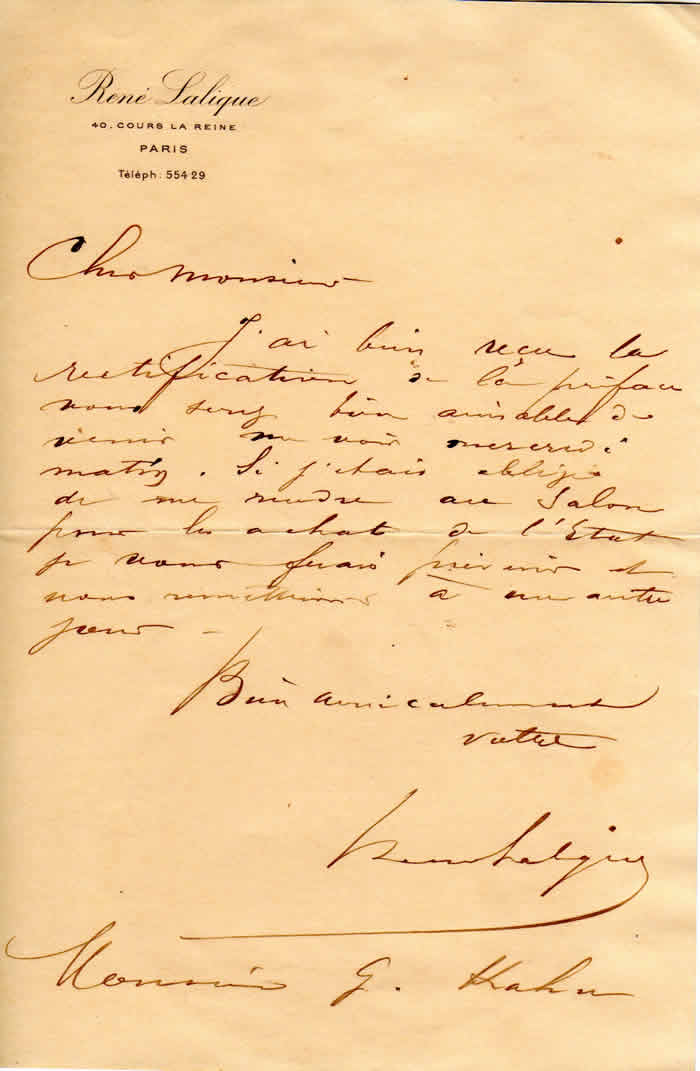 René Lalique
40, COURS LA REINE
PARIS
Téléph: 554-29
Cher Monsieur
J'ai bien reçu la
rectification de la préface
vous serez bien aimable de
venir me voir mercredi
matin. Si j'étais obligé
de me rendre au Salon
pour les achat de l'Etat
je vous ferais prévenir et
nous remettrions à un autre
jour -
Bien amicalement
votre
René Lalique
Monsieur G. Kahn